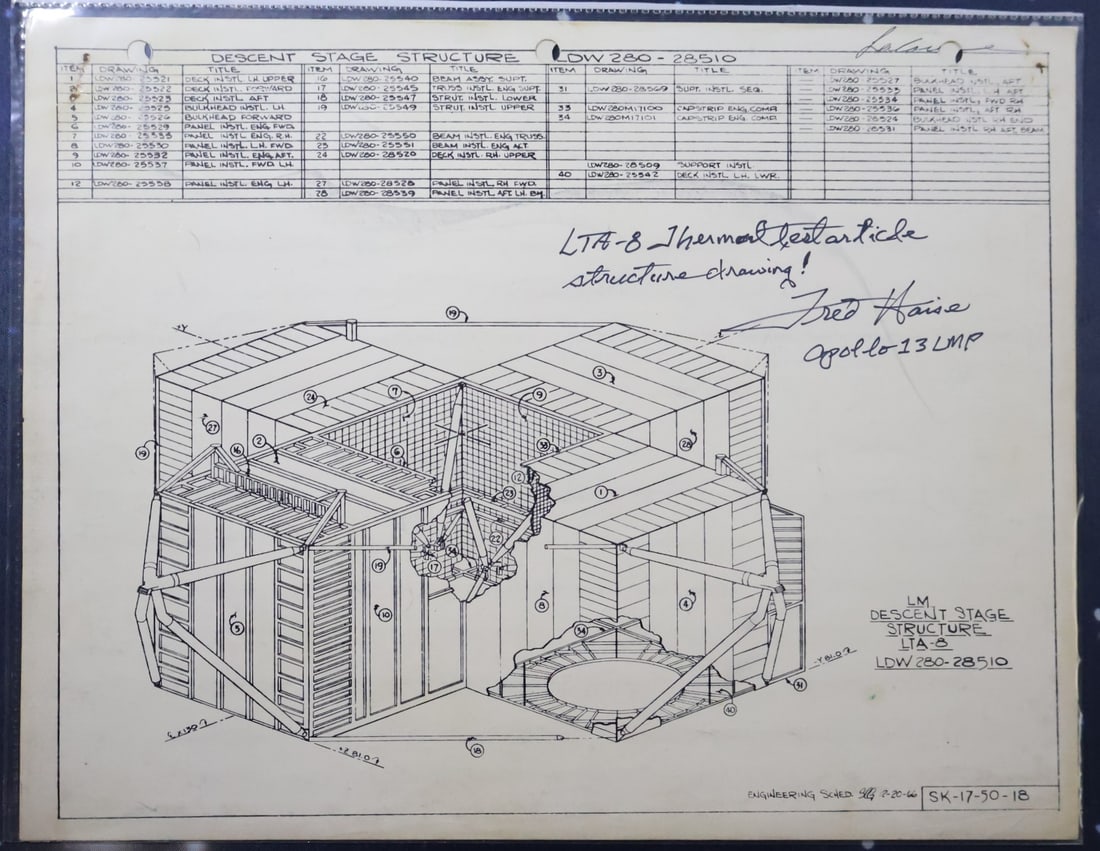 DESCENT STAGE STRUCTURE LDW 280-28510
ITEM DRAWING TITLE ITEM DRAWING TITLE ITEM DRAWING TITLE ITEM DRAWING TITLE
1 LDW280-25521 DECK INSTL LH UPPER 16 LDW280-25540 BEAM ASSY. SUPT. — LDW280-25527 BULKHEAD INSTL AFT
LDW280-25522 DECK INSTL FORWARD 17 LDW280-25545 TRUSS INSTL ENG SUPT. 31 LDW280-28569 SUPT. INSTL SEQ. — PANEL INSTL L H AFT
LDW280-25523 DECK INSTL AFT 18 LDW280-25547 STRUT INSTL. LOWER — LDW280-25534 PANEL INSTL, FWD RH
4 LDW280-25525 BULKHEAD INSTL. LH 19 25549 STRUT INSTL. UPPER 33 LDW280M17100 CAPSTRIP ENG COMP — LDW280-25536 PANEL INSTL, AFT RH
5 LDW280-25526 BULKHEAD FORWARD 34 LDW280M17101 CAPSTRIP ENG COMP — LDW280-25524 BULKHEAD INSTL RH END
6 LDW280-25529 PANEL INSTL ENG FWD. — LDW280-28531 PANEL INSTL RH AFT, BEAM
7 LDW280-25535 PANEL INSTL. ENG. R.H. 22 LDW280-25550 BEAM INSTL. ENG TRUSS.
8 LDW280-25530 PANEL INSTL. L.H. FWD. 23 LDW280-25551 BEAM INSTL. ENG AFT.
9 LDW280-25532 PANEL INSTL. ENG. AFT. 24 LDW280-28520 DECK INSTL. RH. UPPER
10 LDW280-25537 PANEL INSTL. FWD LH. LDW280-28509 SUPPORT INSTL.
40 LDW280-25542 DECK INSTL. LH. LWR.
12 LDW280-25538 PANEL INSTL. ENG LH. 27 LDW280-28528 PANEL INSTL RH FWD.
28 LDW280-28539 PANEL INSTL. AFT LH. BM.
LTA-8 Thermal test article
structure drawing!
Fred Haise
Apollo 13 LMP
19
+Y
3
24
7
9
27
2
38
28
19
16
6
12
1
23
22
34
17
19
5
10
8
4
34
-Y 81.0?
41
40
+Z 81.0?
18
LM
DESCENT STAGE
STRUCTURE
LTA-8
LDW 280-28510
ENGINEERING SCHED. 2-20-66 SK-17-50-18